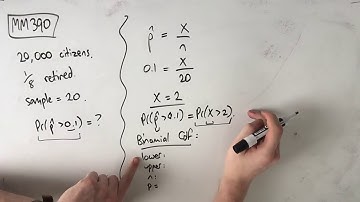 MM390
20,000 citizens.
1/8 retired
sample = 20.
Pr(p̂ > 0.1) = ?
p̂ = X/n
0.1 = X/20
X = 2
Pr(p̂ > 0.1) = Pr(X > 2).
Binomial Cdf:
lower:
upper:
n:
p =